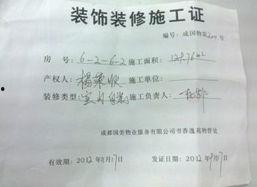 装饰装修施工证
编号：成国物装 号
房 号：6-2-6-2 施工面积：128.76m²
产权人：杨荣 施工单位：
装修类型：室内 施工负责人：
成都国美物业服务有限公司书香逸苑物管处
有效期：2012年8月17日 发证日期：2012年 月17日